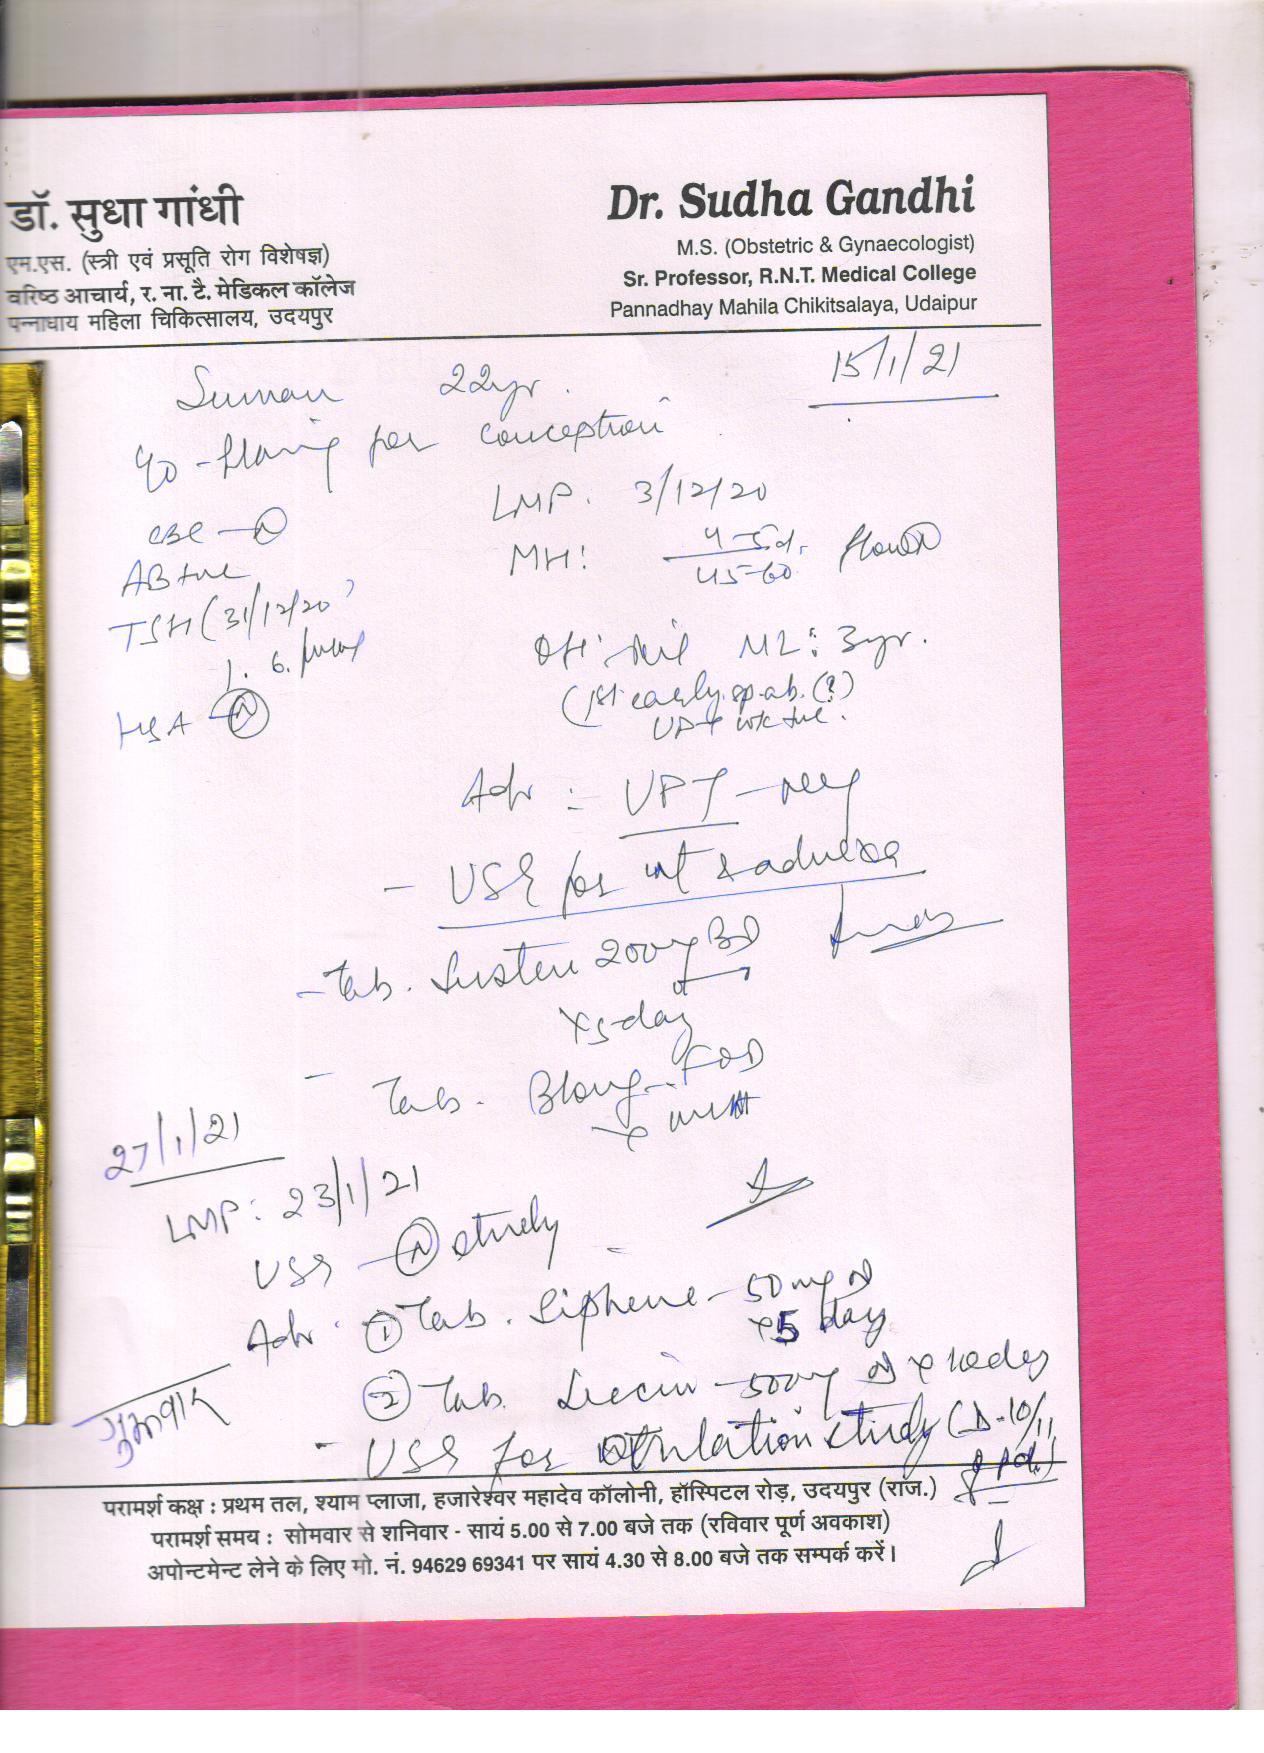 डॉ. सुधा गांधी
एम.एस. (स्त्री एवं प्रसूति रोग विशेषज्ञ)
वरिष्ठ आचार्य, र. ना. टै. मेडिकल कॉलेज
पन्नाधाय महिला चिकित्सालय, उदयपुर
Dr. Sudha Gandhi
M.S. (Obstetric & Gynaecologist)
Sr. Professor, R.N.T. Medical College
Pannadhay Mahila Chikitsalaya, Udaipur
15/1/21
Suman 22yr.
for conception
LMP. 3/12/20
CBC - N
MH: 4-5d. flow N
45-60
AB +ve
TSH (31/12/20)
1. 6.
OH: Nil ML: 3yr.
(1st early. sp. ab. (?)
UPT +ve.
HSA - N
Adv : UPT - neg
- USG for ut & adnexa
- Tab. Susten 200mg BD
x 5 day
- Tab. Blong-F OD
27/1/21
LMP: 23/1/21
USG - N study
Adv. 1 Tab. Siphene - 50mg
x 5 day
2 Tab. - 500mg x 10 day
- USG for Ovulation study (D-10/11
गुरूवार
परामर्श कक्ष : प्रथम तल, श्याम प्लाजा, हजारेश्वर महादेव कॉलोनी, हॉस्पिटल रोड़, उदयपुर (राज.)
परामर्श समय : सोमवार से शनिवार - सायं 5.00 से 7.00 बजे तक (रविवार पूर्ण अवकाश)
अपोन्टमेन्ट लेने के लिए मो. नं. 94629 69341 पर सायं 4.30 से 8.00 बजे तक सम्पर्क करें।